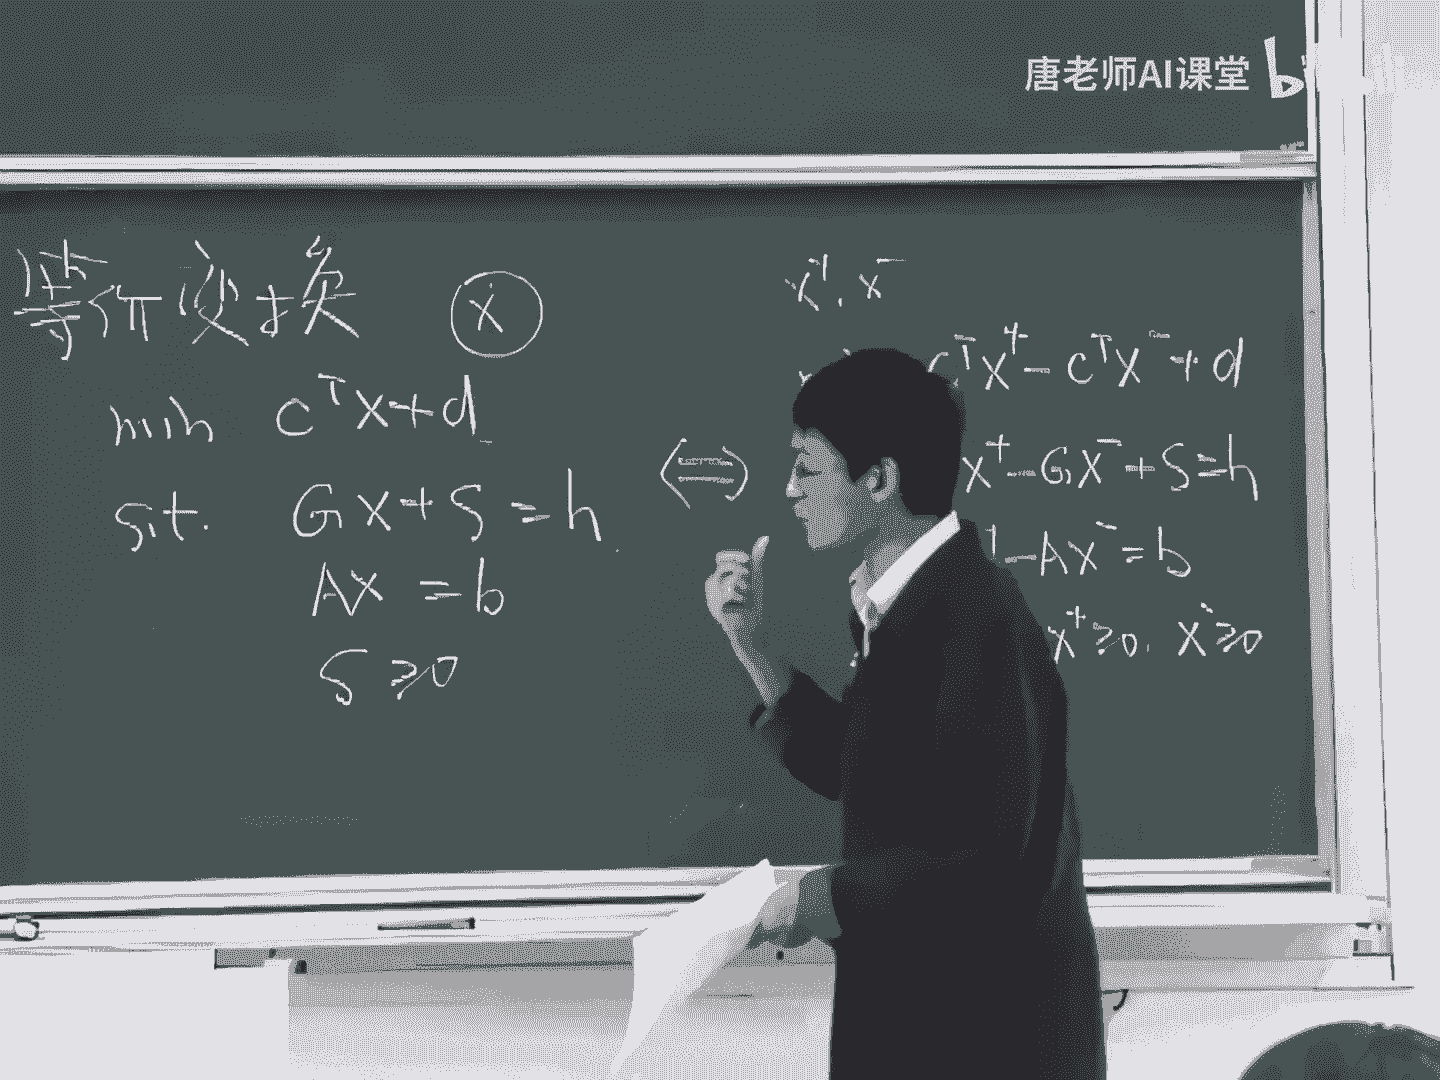 唐老师AI课堂 b
等价变换 x
min cᵀx+d
s.t. Gx+S=h
Ax=b
S≥0
⇔
x⁺, x⁻
cᵀx⁺-cᵀx⁻+d
x⁺-Gx⁻+S=h
-Ax⁻=b
x⁺≥0, x⁻≥0